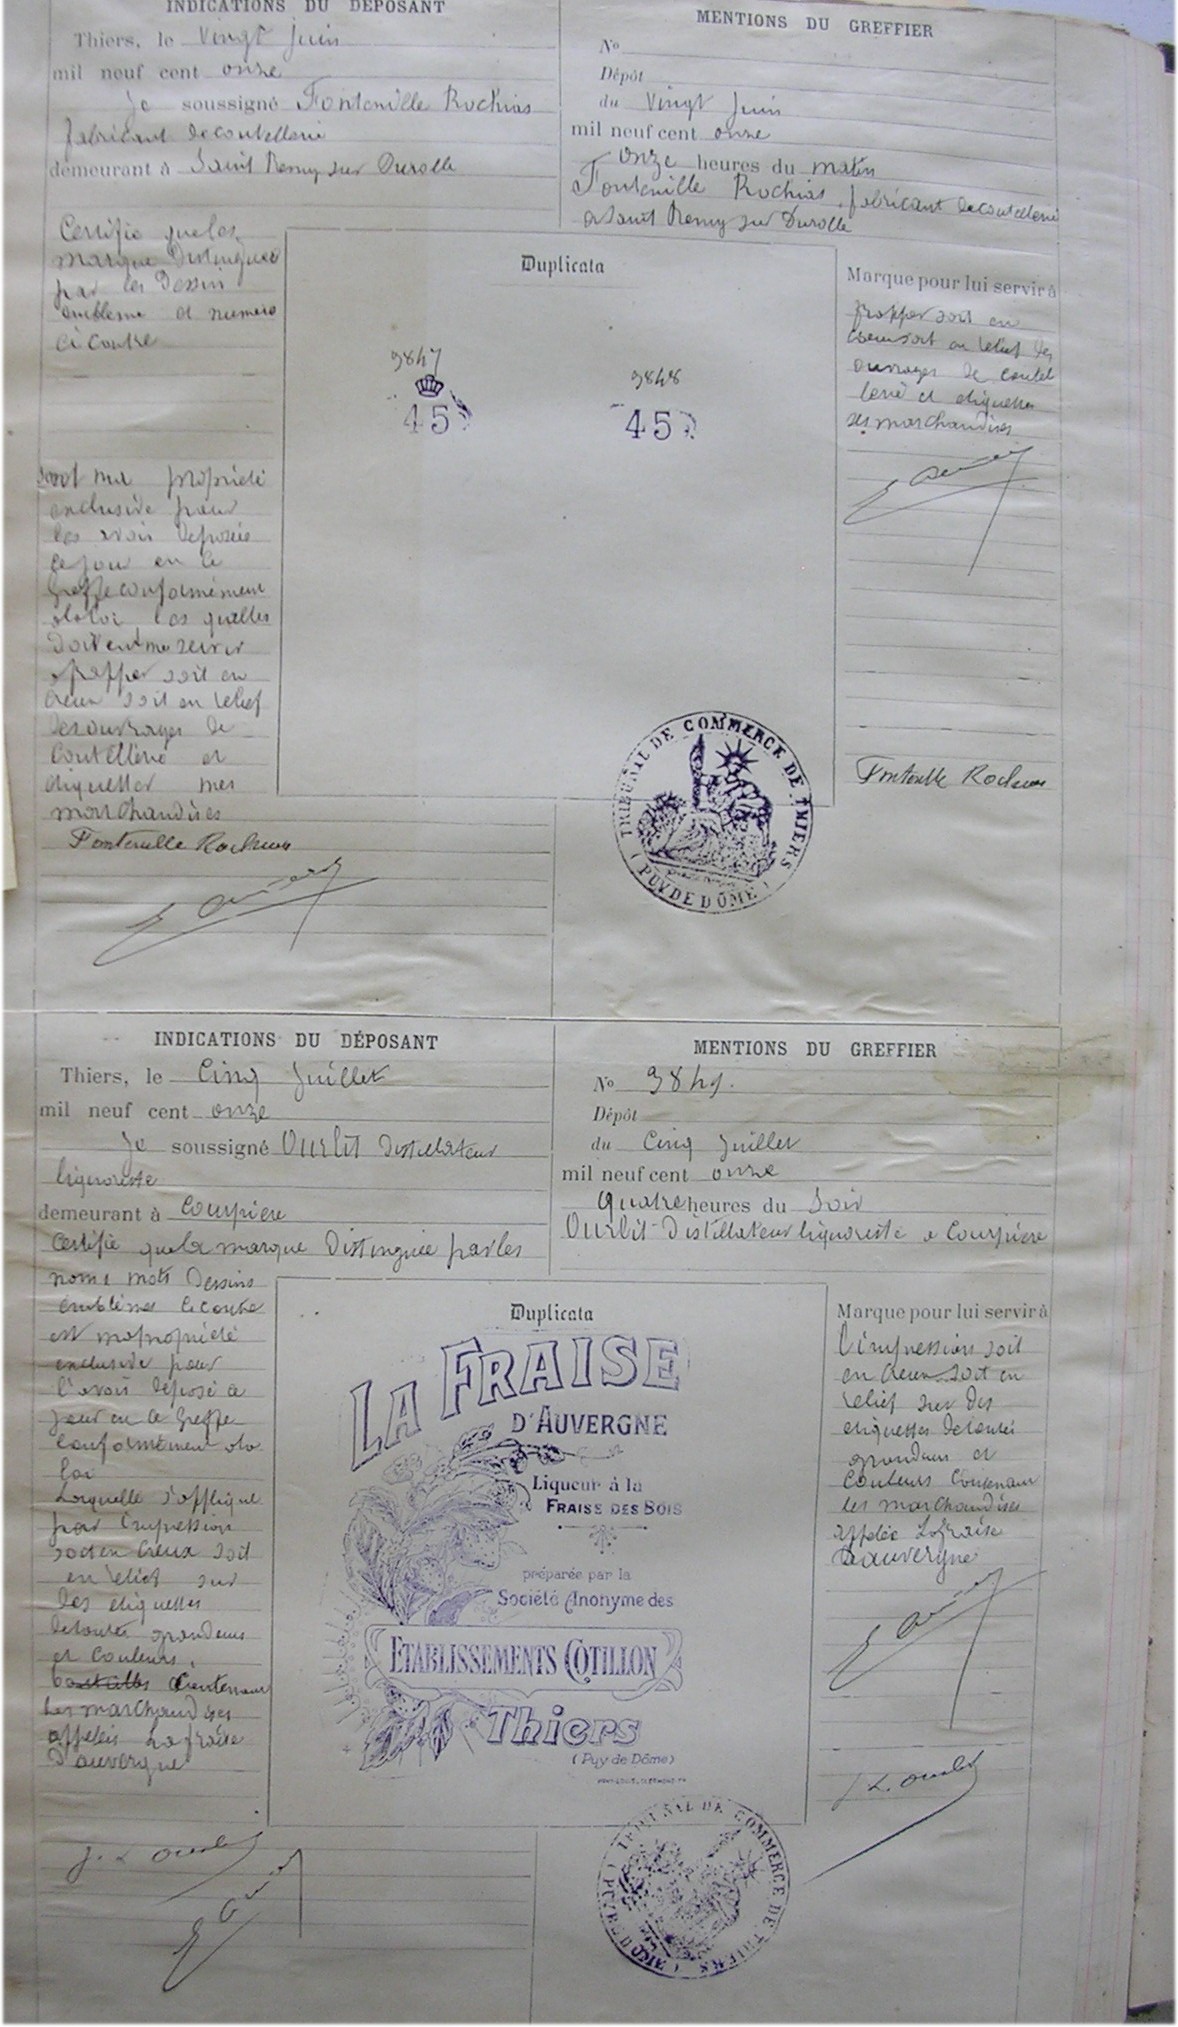 INDICATIONS DU DÉPOSANT
Thiers, le Vingt Juin
mil neuf cent onze
Je soussigné Fontenille Rochias
fabricant de coutellerie
demeurant à Saint Remy sur Durolle
MENTIONS DU GREFFIER
No
Dépôt
du Vingt Juin
mil neuf cent onze
onze heures du matin
Fontenille Rochias, fabricant de coutellerie
a Saint Remy sur Durolle
Certifie que les
marque Distinguée
par les Dessin
embleme et numero
ci contre
sont ma propriété
exclusive pour
les avoir deposée
ce jour en le
Greffe conformément
a la loi les quelles
Doivent me servir
a frapper soit en
creux soit en relief
des ouvrages de
Coutellerie et
etiquetter mes
marchandises
Fontenille Rochias
Duplicata
9847
45
9848
45
TRIBUNAL DE COMMERCE DE THIERS
(PUY DE DÔME)
Marque pour lui servir à
frapper soit en
creux soit en relief des
ouvrages de coutel
lerie et etiquetter
ses marchandises
Fontenille Rochias
INDICATIONS DU DÉPOSANT
Thiers, le Cinq Juillet
mil neuf cent onze
Je soussigné Ourlit Distillateur
liquoriste
demeurant à Courpiere
Certifie que la marque Distinguée par les
noms mots Dessins
emblèmes ci contre
est ma propriété
exclusive pour
l'avoir deposé ce
jour en le Greffe
conformément a la
loi
Laquelle s'applique
par l'impression
soit en creux soit
en relief sur
des etiquettes
de toutes grandeurs
et couleurs,
Contenant
les marchandises
appelées La fraise
D'auvergne
MENTIONS DU GREFFIER
No 9849.
Dépôt
du Cinq Juillet
mil neuf cent onze
Quatre heures du Soir
Ourlit Distillateur liquoriste a Courpière
Duplicata
LA FRAISE
D'AUVERGNE
Liqueur à la
FRAISE DES BOIS
préparée par la
Société Anonyme des
ETABLISSEMENTS COTILLON
Thiers
(Puy de Dôme)
TRIBUNAL DE COMMERCE DE THIERS
(PUY DE DÔME)
Marque pour lui servir à
l'impression soit
en creux soit en
relief sur des
etiquettes de toutes
grandeurs et
couleurs contenant
les marchandises
appelée La fraise
D'auvergne